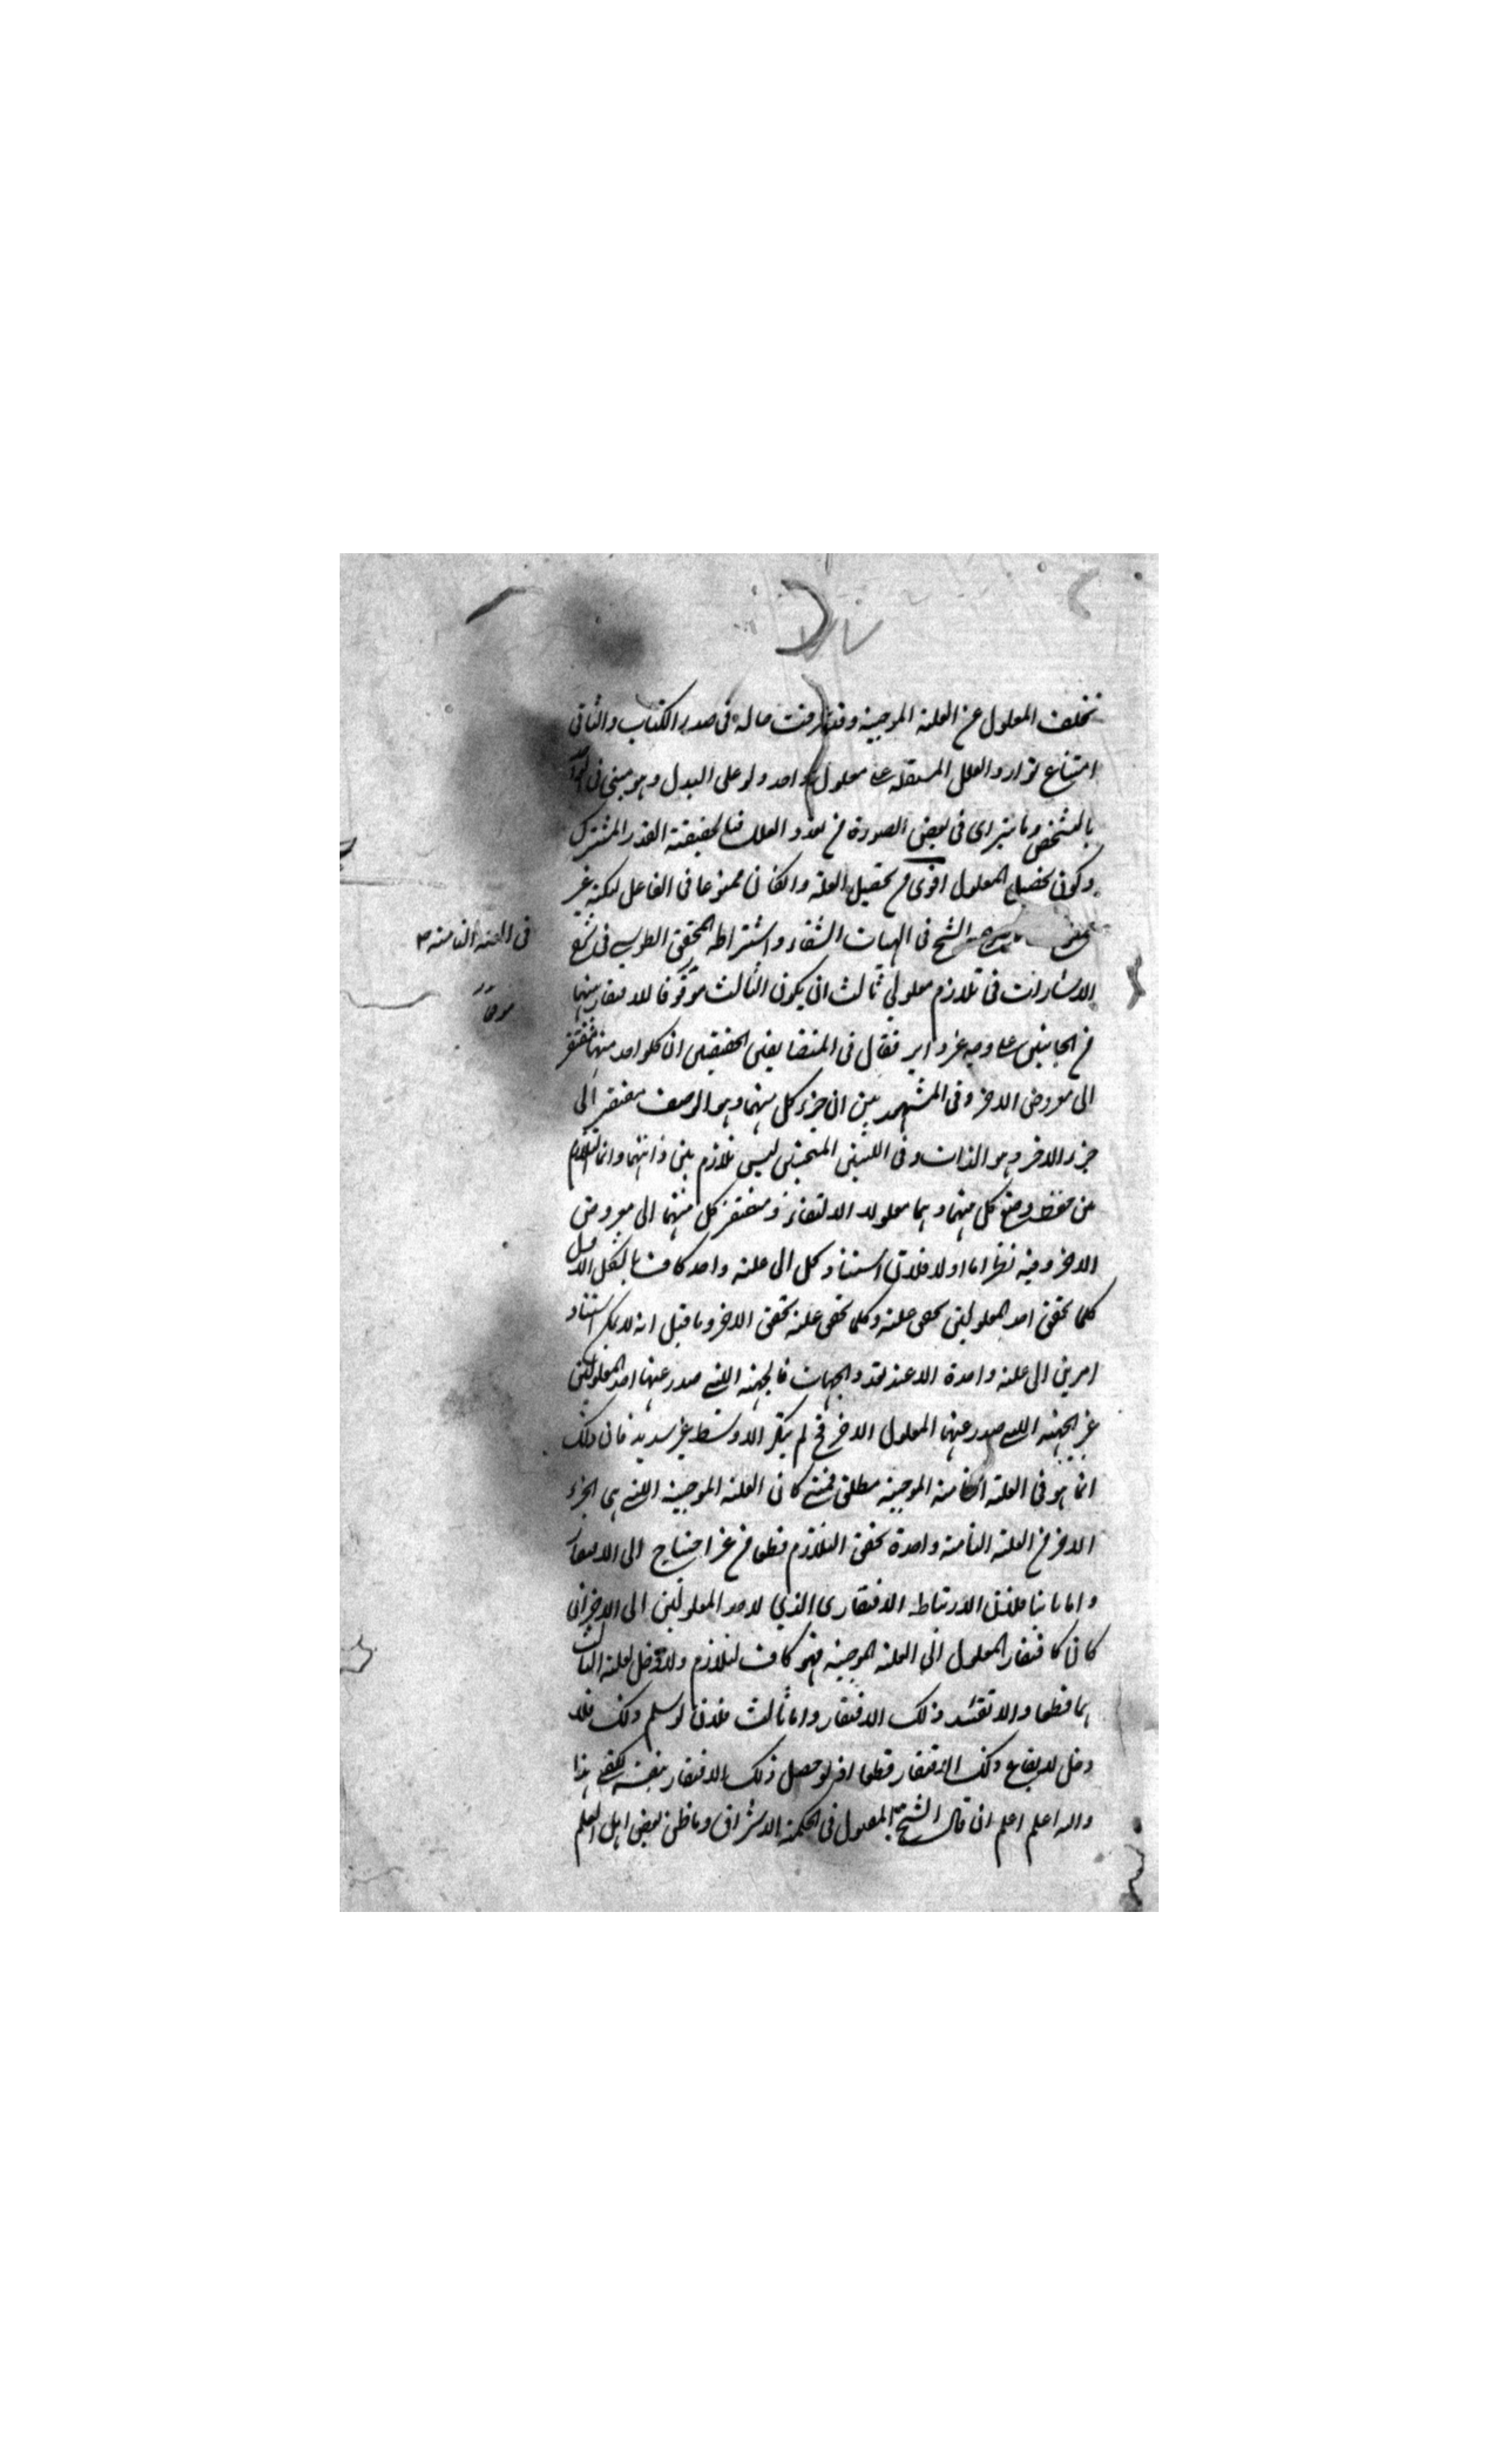 تخلف المعلول عن العلة الموجبة وقد عرفت حاله فى صدر الكتاب والثانى
امتناع توارد العلل المستقلة على معلول واحد ولو على البدل وهو مبنى فى
بالشخص وما يتراى فى بعض الصورة من تعدد العلل فبالحقيقة القدر المشترك
وكون تحصيل المعلول اقوى من تحصيل العلة وان كان ممنوعا فى الفاعل لكنه غير
الشيخ فى الهيات الشفاء واشتراط المحقق الطوسى فى شرح
الاشارات فى تلازم معلولى ثالث ان يكون الثالث موقعا للافتقار بينهما
فى العلة التامة
موقعا
من الجانبين على وجه غير دائر فقال فى المتضايفين الحقيقيين ان كل واحد منهما مفتقر
الى معروض الاخر وفى المشهورين ان جزء كل منهما وهو الوصف مفتقر الى
جزء الاخر وهو الذات وفى اللبنتين المنحنيتين ليس تلازم بين ذاتيهما وانما التلازم
بين وضع كل منهما وهما معلولا الالتقاء ومفتقر كل منهما الى معروض
الاخر وفيه نظر اما اولا فلان استناد كل الى علة واحد كاف بالشكل الاول
كلما تحقق احد المعلولين تحقق علته وكلما تحقق علته تحقق الاخر وما قيل انه لا يمكن استناد
امرين الى علة واحدة الا عند تعدد الجهات فالجهة التى صدر عنها احد المعلولين
غير الجهة التى صدر عنها المعلول الاخر فح لم يتكرر الاوسط غير سديد فان ذلك
انما هو فى العلة التامة الموجبة مطلق فمتى كان العلة الموجبة التى هى الجزء
الاخر من العلة التامة واحدة تحقق التلازم قطعا من غير احتياج الى الافتقار
واما ثانيا فلان الارتباط الافتقارى الذى لاحد المعلولين الى الاخر ان
كان كافتقار المعلول الى العلة الموجبة فهو كاف لتلازم ولا دخل لعلة الثالث
بهما قطعا والا تقئد ذلك الافتقار واما ثالثا فلان لو سلم ذلك فلا
دخل لايقاع ذلك الافتقار قطعا اذ لو حصل ذلك الافتقار بنفسه لكفى هذا
والله اعلم اعلم ان قال الشيخ المقتول فى الحكمة الاشراق وما ظن بعض اهل العلم